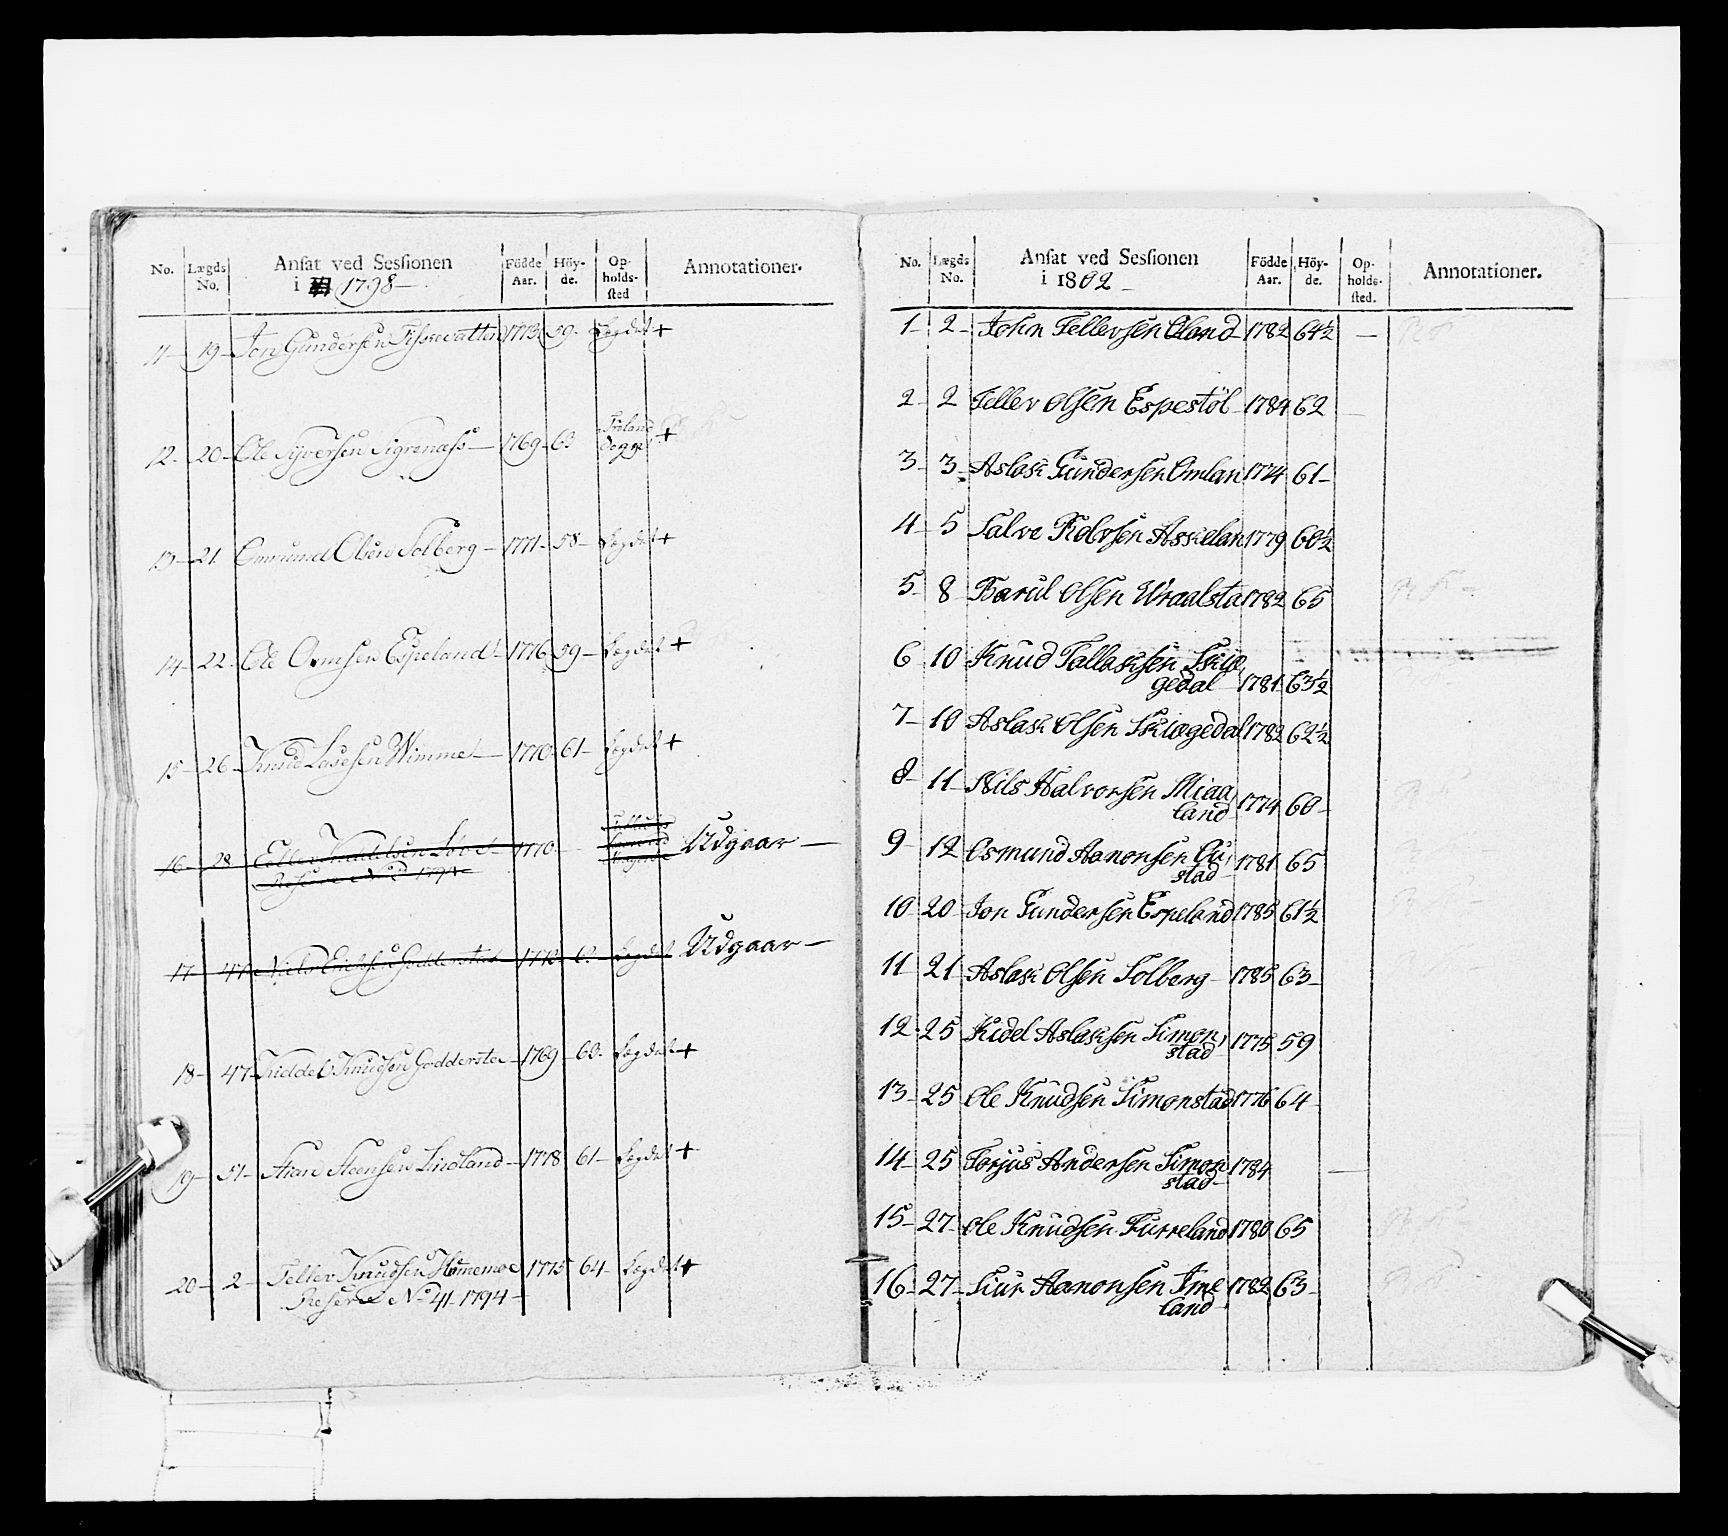 No. Lægds No. Ansat ved Sessionen i 1798 Födde Aar. Höyde. Opholdssted Annotationer.
11 19 Jon Gundersen Fissevatten 1773 59 Legdet +
12 20 Ole Syversen Sigrenæss 1769 63 Froland Dogget +
13 21 Omund Olsen Solberg 1771 58 Legdet +
14 22 Ole Ormsen Espeland 1776 59 Legdet +
15 26 Knud Lasesen Wimme 1770 61 Legdet +
16 28 Knudsen 1770 Udgaar
Reserve No 1794
17 47 Niels 62 Legdet Udgaar
18 47 Kiddel Knudsen Godderste 1769 60 Legdet +
19 51 Steensen Lindland 1778 61 Legdet +
20 2 Tellev Knudsen Hommemoe 1775 64 Legdet +
Reserve No 41 1794
No. Lægds No. Ansat ved Sessionen i 1802 Födde Aar. Höyde. Opholdssted. Annotationer.
1 2 John Tellevsen Oland 1782 64½ —
2 2 Tellev Olsen Espestöl 1784 62
3 3 Aslak Gundersen Omlan 1774 61
4 5 Salve Rolvsen Askelan 1779 60½
5 8 Barul Olsen Uraalsta 1782 65
6 10 Knud Tallaksen Skiæ
gedal 1781 63½
7 10 Aslak Olsen Skiægedal 1782 62½
8 11 Nils Halvorsen Miaa
land 1774 60
9 12 Osmund Aanonsen Ou
stad 1781 65
10 20 Jon Gundersen Espeland 1785 61½
11 21 Aslak Olsen Solberg 1785 63
12 25 Kidel Aslaksen Simon
stad 1775 59
13 25 Ole Knudsen Simonstad 1776 64
14 25 Torjus Andersen Simon
stad 1784 —
15 27 Ole Knudsen Furreland 1780 65
16 27 Siur Aanonsen Ime
land 1782 63